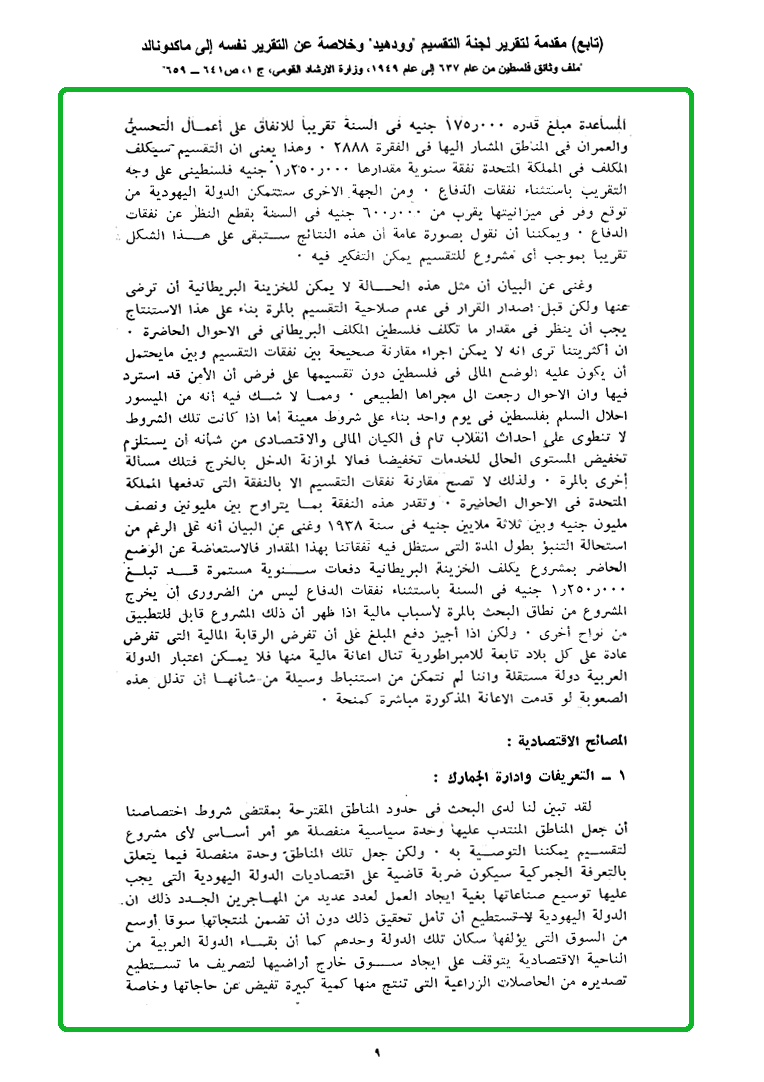 (تابع) مقدمة لتقرير لجنة التقسيم "وودهيد" وخلاصة عن التقرير نفسه إلى ماكدونالد
"ملف وثائق فلسطين من عام ٦٣٧ إلى عام ١٩٤٩، وزارة الارشاد القومى، ج ١، ص٦٤١ – ٦٥٩"
المساعدة مبلغ قدره ١٧٥٫٠٠٠ جنيه فى السنة تقريبا للانفاق على أعمال التحسين
والعمران فى المناطق المشار اليها فى الفقرة ٢٨٨٨ ٠ وهذا يعنى ان التقسيم سيكلف
المكلف فى المملكة المتحدة نفقة سنوية مقدارها ١٫٢٥٠٫٠٠٠ جنيه فلسطينى على وجه
التقريب باستثناء نفقات الدفاع ٠ ومن الجهة الاخرى ستتمكن الدولة اليهودية من
توقع وفر فى ميزانيتها يقرب من ٦٠٠٫٠٠٠ جنيه فى السنة بقطع النظر عن نفقات
الدفاع ٠ ويمكننا أن نقول بصورة عامة ان هذه النتائج ستبقى على هذا الشكل
تقريبا بموجب أى مشروع للتقسيم يمكن التفكير فيه ٠
وغنى عن البيان أن مثل هذه الحالة لا يمكن للخزينة البريطانية أن ترضى
عنها ولكن قبل اصدار القرار فى عدم صلاحية التقسيم بالمرة بناء على هذا الاستنتاج
يجب أن ينظر فى مقدار ما تكلف فلسطين المكلف البريطانى فى الاحوال الحاضرة ٠
ان أكثريتنا ترى انه لا يمكن اجراء مقارنة صحيحة بين نفقات التقسيم وبين مايحتمل
أن يكون عليه الوضع المالى فى فلسطين دون تقسيمها على فرض أن الأمن قد استرد
فيها وان الاحوال رجعت الى مجراها الطبيعى ٠ ومما لا شك فيه أنه من الميسور
احلال السلم بفلسطين فى يوم واحد بناء على شروط معينة أما اذا كانت تلك الشروط
لا تنطوى على احداث انقلاب تام فى الكيان المالى والاقتصادى من شأنه أن يستلزم
تخفيض المستوى الحالى للخدمات تخفيضا فعالا لموازنة الدخل بالخرج فتلك مسألة
أخرى بالمرة ٠ ولذلك لا تصح مقارنة نفقات التقسيم الا بالنفقة التى تدفعها المملكة
المتحدة فى الاحوال الحاضرة ٠ وتقدر هذه النفقة بما يتراوح بين مليونين ونصف
مليون جنيه وبين ثلاثة ملايين جنيه فى سنة ١٩٣٨ وغنى عن البيان أنه على الرغم من
استحالة التنبؤ بطول المدة التى ستظل فيه نفقاتنا بهذا المقدار فالاستعاضة عن الوضع
الحاضر بمشروع يكلف الخزينة البريطانية دفعات سنوية مستمرة قد تبلغ
١٫٢٥٠٫٠٠٠ جنيه فى السنة باستثناء نفقات الدفاع ليس من الضرورى أن يخرج
المشروع من نطاق البحث بالمرة لأسباب مالية اذا ظهر أن ذلك المشروع قابل للتطبيق
من نواح أخرى ٠ ولكن اذا أجيز دفع المبلغ على أن تفرض الرقابة المالية التى تفرض
عادة على كل بلاد تابعة للامبراطورية تنال اعانة مالية منها فلا يمكن اعتبار الدولة
العربية دولة مستقلة واننا لم نتمكن من استنباط وسيلة من شأنها ان تذلل هذه
الصعوبة لو قدمت الاعانة المذكورة مباشرة كمنحة ٠
المصالح الاقتصادية :
١ – التعريفات وادارة الجمارك :
لقد تبين لنا لدى البحث فى حدود المناطق المقترحة بمقتضى شروط اختصاصنا
أن جعل المناطق المنتدب عليها وحدة سياسية منفصلة هو أمر أساسى لأى مشروع
لتقسيم يمكننا التوصية به ٠ ولكن جعل تلك المناطق وحدة منفصلة فيما يتعلق
بالتعرفة الجمركية سيكون ضربة قاضية على اقتصاديات الدولة اليهودية التى يجب
عليها توسيع صناعاتها بغية ايجاد العمل لعدد عديد من المهاجرين الجدد ذلك ان
الدولة اليهودية لا تستطيع أن تأمل تحقيق ذلك دون أن تضمن لمنتجاتها سوقا أوسع
من السوق التى يؤلفها سكان تلك الدولة وحدهم كما أن بقاء الدولة العربية من
الناحية الاقتصادية يتوقف على ايجاد سوق خارج أراضيها لتصريف ما تستطيع
تصديره من الحاصلات الزراعية التى تنتج منها كمية كبيرة تفيض عن حاجاتها وخاصة
٩